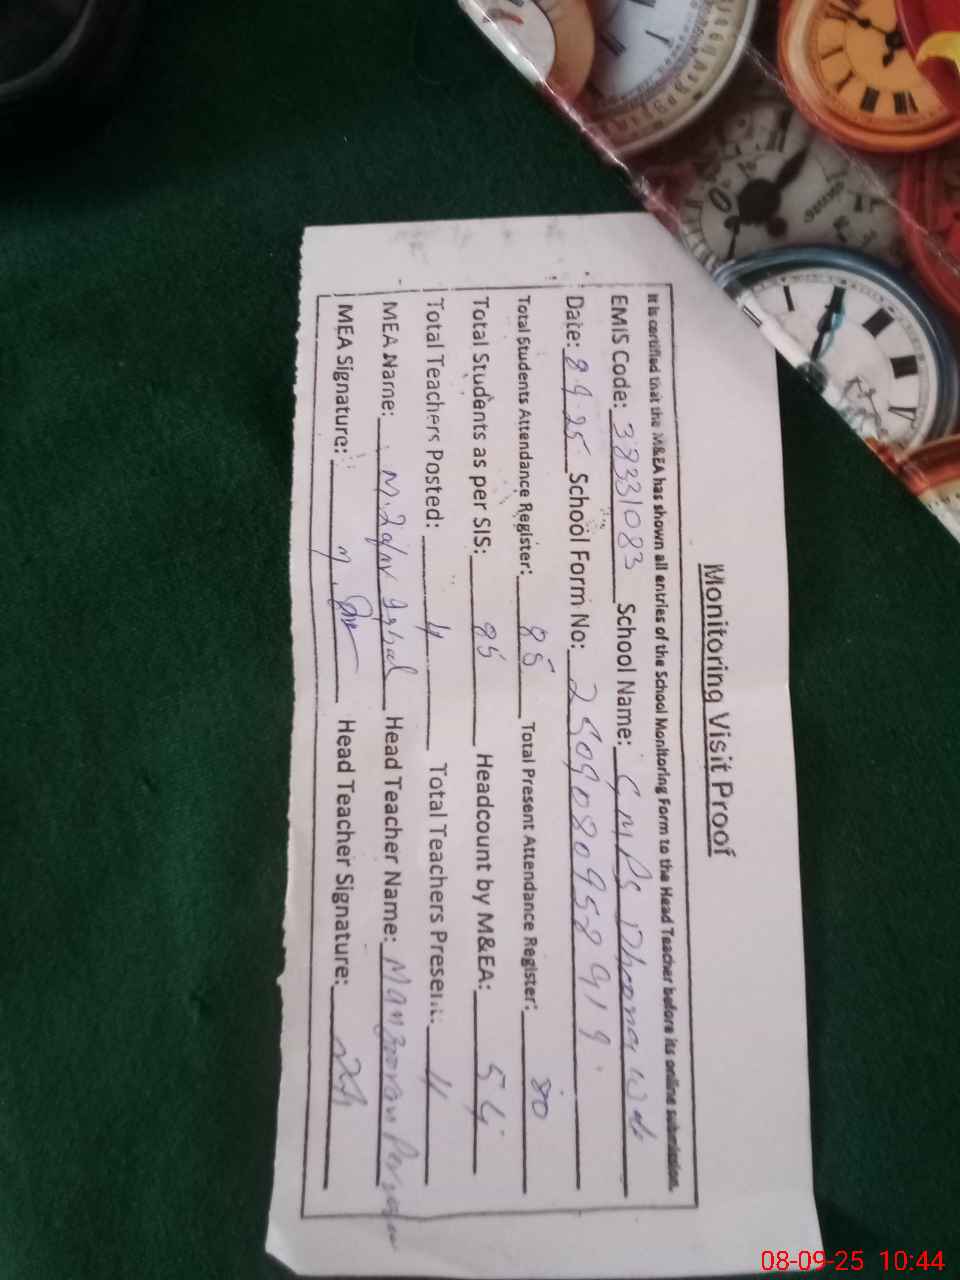 Monitoring Visit Proof
It is certified that the M&EA has shown all entries of the School Monitoring Form to the Head Teacher before its online submission.
EMIS Code: 38331083 School Name: GMPS Dhoona
Date: 8 9 25 School Form No: 2509080958919
Total Students Attendance Register: 85 Total Present Attendance Register: 80
Total Students as per SIS: 85 Headcount by M&EA: 54
Total Teachers Posted: 4 Total Teachers Present: 4
MEA Name: M. Iqbal Head Teacher Name:
MEA Signature: M. Head Teacher Signature:
08-09-25 10:44